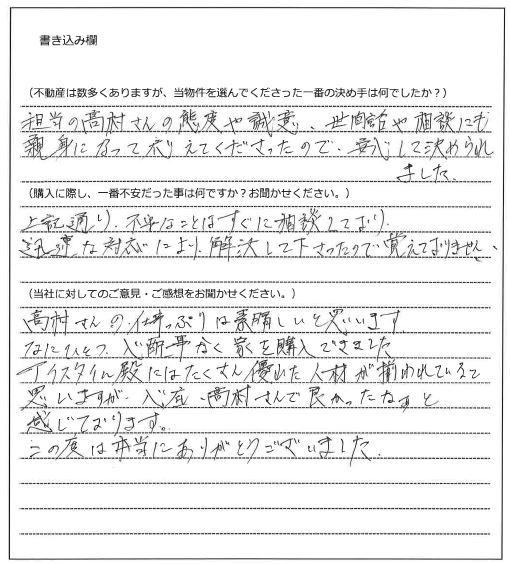 書き込み欄
(不動産は数多くありますが、当物件を選んでくださった一番の決め手は何でしたか？)
担当の髙村さんの態度や誠意、世間話や相談にも
親身になって応えてくださったので、安心して決められ
ました。
(購入に際し、一番不安だった事は何ですか？お聞かせください。)
上記通り、不安なことはすぐに相談しており、
迅速な対応により、解決して下さったので覚えておりません、
(当社に対してのご意見・ご感想をお聞かせください。)
髙村さんの仕事っぷりは素晴しいと思います
なにひとつ、心配事なく家を購入できました
アイスタイル殿にはたくさん優れた人材が揃われていると
思いますが、心底、髙村さんで良かったなぁと
感じております。
この度は本当にありがとうございました。